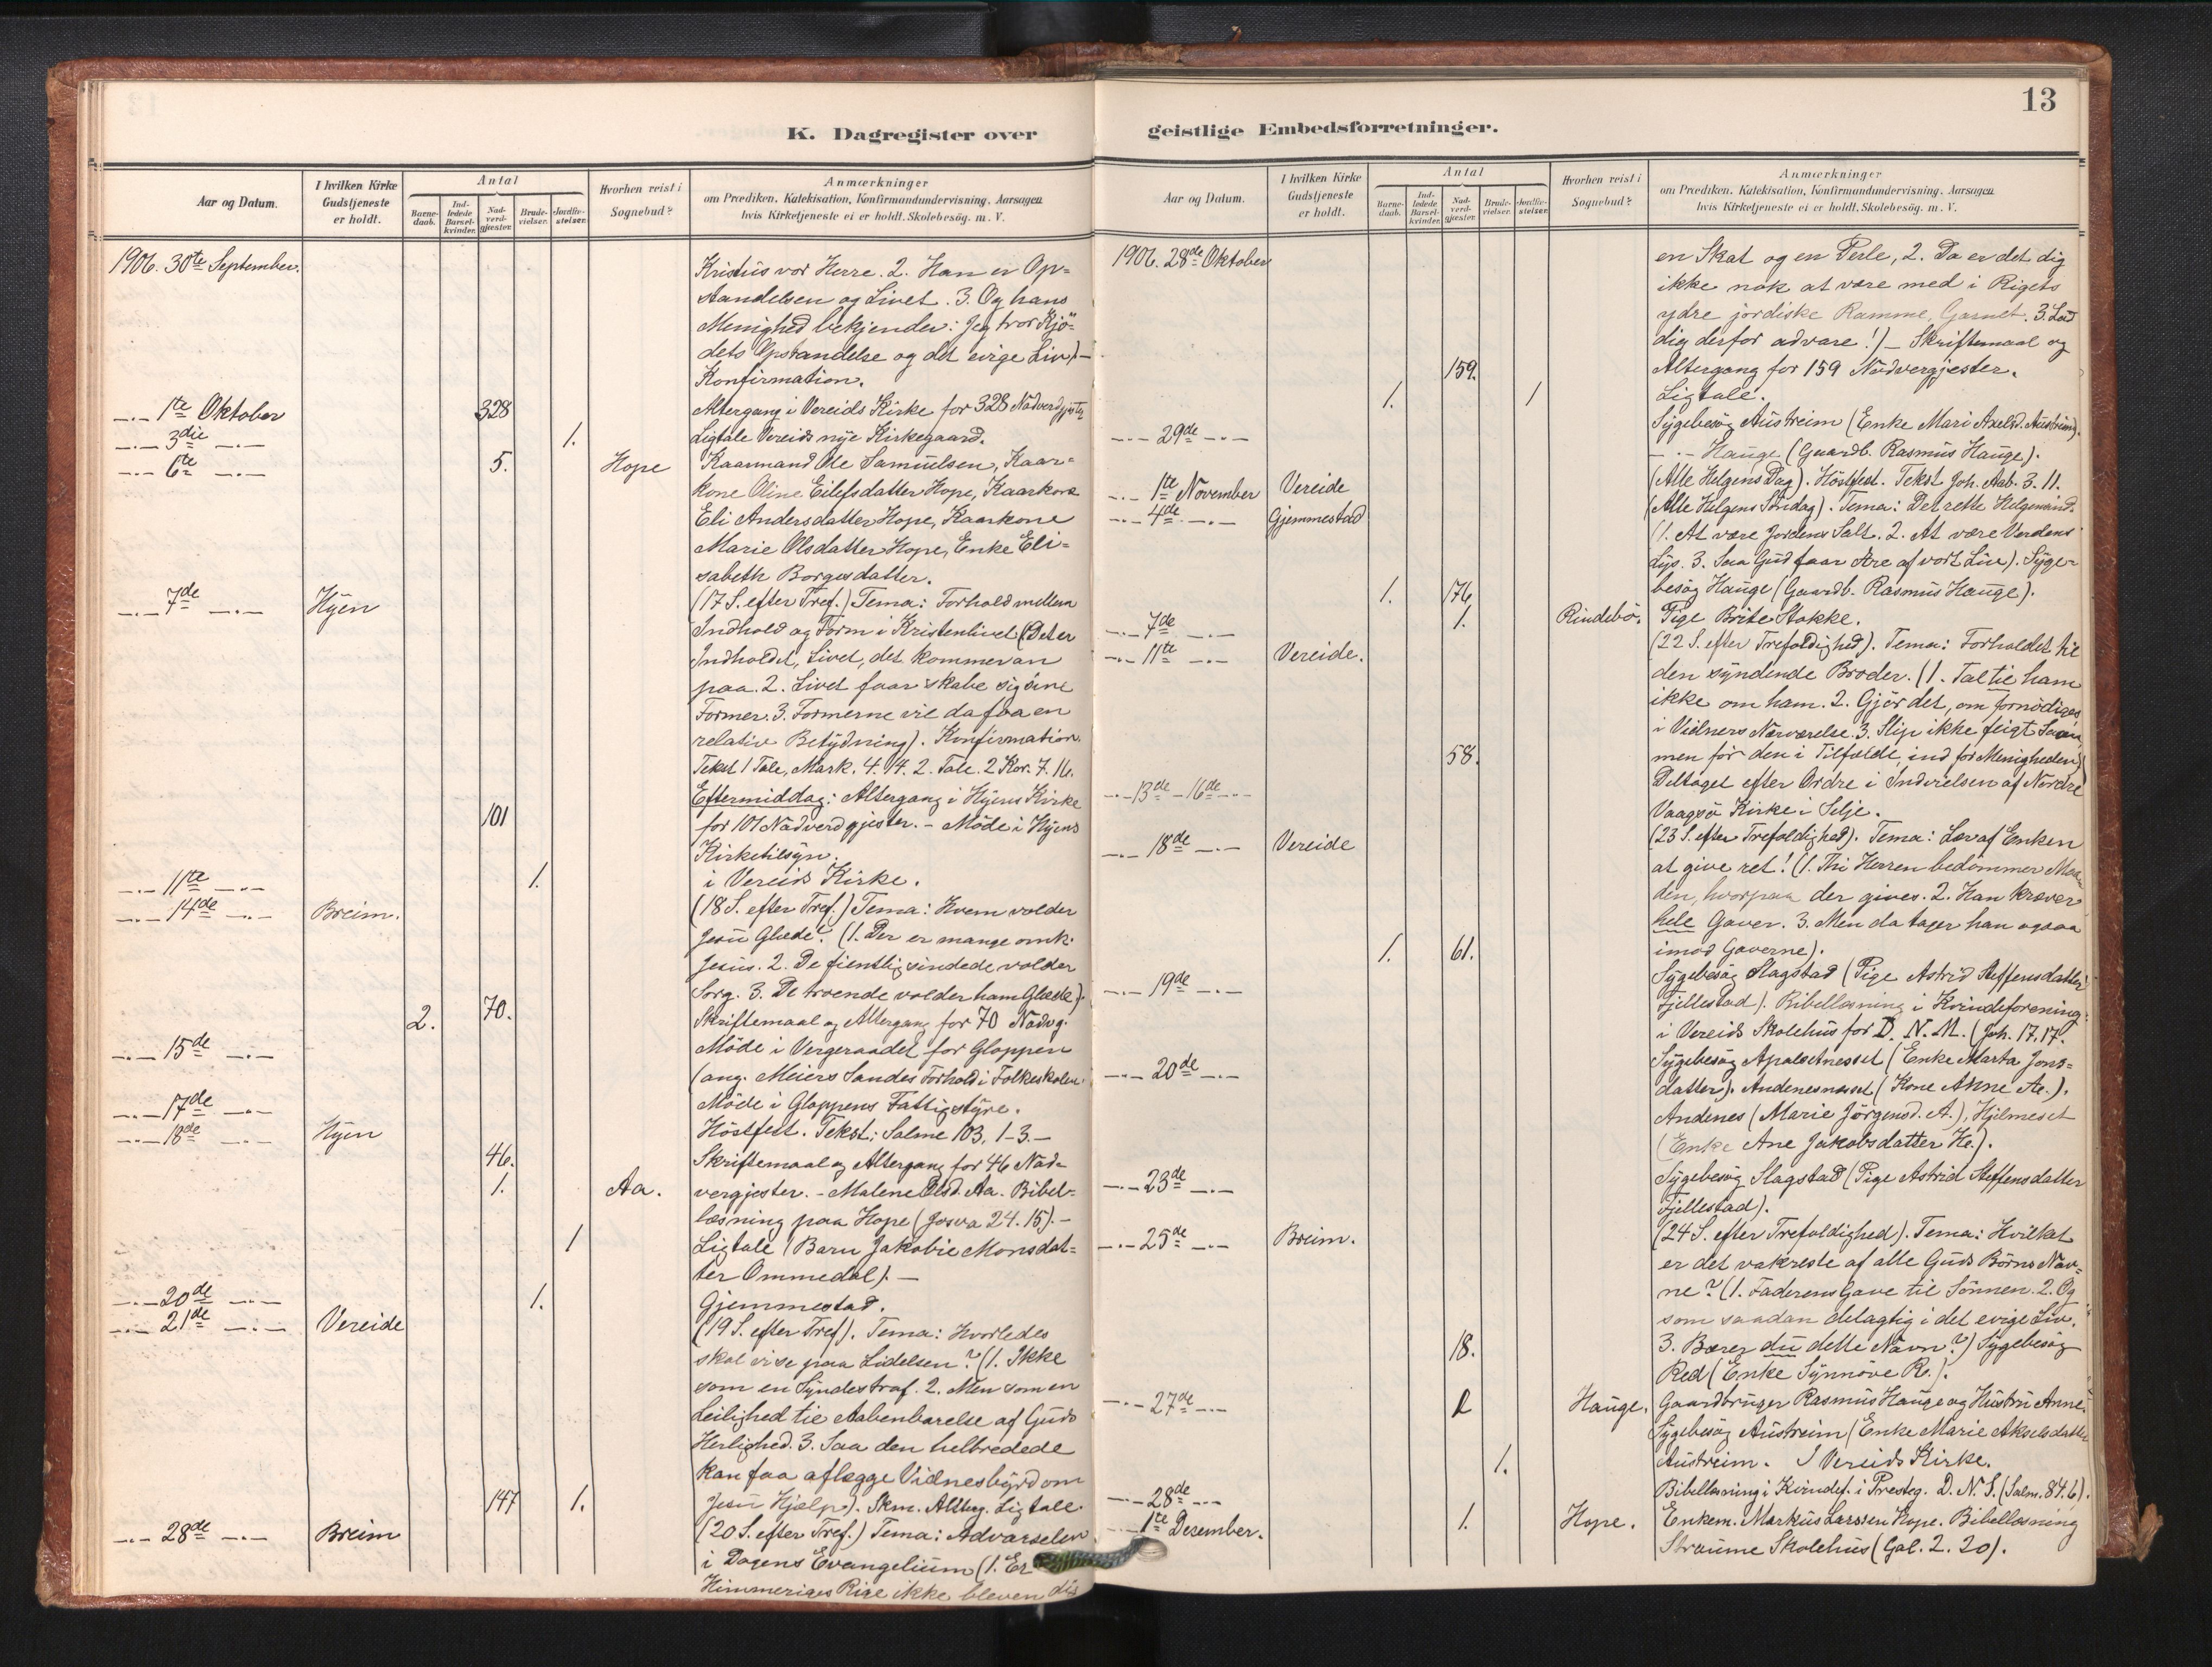 13
K. Dagregister over
geistlige Embedsforretninger.
Aar og Datum.
I hvilken Kirke Gudstjeneste er holdt.
Antal
Barne-daab.
Ind-ledede Barsel-kvinder.
Nad-verd-gjæster.
Brude-vielser.
Jordfæ-stelser.
Hvorhen reist i Sognebud?
Anmærkninger
om Prædiken, Katekisation, Konfirmandundervisning, Aarsagen
hvis Kirketjeneste ei er holdt. Skolebesøg. m. V.
1906. 30te September.
Kristus vor Herre. 2. Han er Op=
standelsen og Livet. 3. Og hans
Menighed bekjender: Jeg tror Kjö=
dets Opstandelse og det evige Liv) –
Konfirmation.
—.— 1te Oktober 328 Altergang i Vereids Kirke for 328 Nadverdgjester
—.— 3die —.— 1. Ligtale Vereids nye Kirkegaard.
—.— 6te —.— 5. Hope Kaarmand Ole Samuelsen, Kaar=
kone Oline Eilefsdatter Hope, Kaarkone
Eli Andersdatter Hope, Kaarkone
Marie Olsdatter Hope, Enke Eli=
sabeth Borgesdatter.
—.— 7de —.— Hyen (17 S. efter Tref.) Tema: Forhold mellem
Indhold og Form i Kristenlivet (Det er
Indholdet, Livet, det kommer an
paa. 2. Livet faar skabe sig sine
Former. 3. Formerne vil da faa en
relativ Betydning). Konfirmation.
Tekst 1 Tale, Mark. 4. 14. 2. Tale. 2 Kor. 7. 16.
Eftermiddag: Altergang i Hyens Kirke
101 for 101 Nadverdgjester. – Möde i Hyens
Kirketilsyn.
—.— 11te —.— 1. i Vereids Kirke.
—.— 14de —.— Breim. (18 S. efter Tref.) Tema: Hvem volder
Jesu Glæde? (1. Der er mange omk.
Jesus. 2. De fiendtlig sindede volder
Sorg. 3. De troende volder ham Glæde).
2. 70. Skriftemaal og Altergang for 70 Nadvg.
—.— 15de —.— Möde i Vergeraadet for Gloppen
(ang. Meiers Sandes Forhold i Folkeskolen.
—.— 17de —.— Möde i Gloppens Fattigstyre.
—.— 18de —.— Hyen Höstfest. Tekst: Salme 103. 1–3. –
46. Skriftemaal og Altergang for 46 Nad=
1. Aa. vergjester. – Malene Olsd. Aa. Bibel=
læsning paa Hope (Josva 24. 15). –
1 Ligtale (Barn Jakobie Monsdat=
ter Ommedal). —
—.— 20de —.— 1. Gjemmestad.
—.— 21de —.— Vereide (19 S. efter Tref). Tema: Hvorledes
skal vi se paa Lidelsen? (1. Ikke
som en Syndestraf. 2. Men som en
Leilighed til Aabenbarelse af Guds
Herlighed. 3. Saa den helbredede
kan faa aflægge Vidnesbyrd om
147 1. Jesu Hjælp). Skm. Alterg. Ligtale.
—.— 28de —.— Breim (20 S. efter Tref.) Tema: Advarselen
i Dagens Evangelium (1. Er
Himmeriges Rige ikke bleven dig
Aar og Datum.
I hvilken Kirke Gudstjeneste er holdt.
Antal
Barne-daab.
Ind-ledede Barsel-kvinder.
Nad-verd-gjæster.
Brude-vielser.
Jordfæ-stelser.
Hvorhen reist i Sognebud?
Anmærkninger
om Prædiken, Katekisation, Konfirmandundervisning, Aarsagen
hvis Kirketjeneste ei er holdt. Skolebesøg. m. V.
1906. 28de Oktober en Skat og en Perle, 2. Da er det dig
ikke nok at være med i Rigets
ydre jordiske Ramme, Garnet. 3. Lad
dig derfor advare!) – Skriftemaal og
159. Altergang for 159 Nadvergjester.
1. 1 Ligtale.
—.— 29de —.— Sygebesøg Austreim (Enke Mari Axelsd. Austreim).
— " — Hauge (Gaardb. Rasmus Hauge).
—.— 1te November Vereide (Alle Helgens Dag). Höstfest. Tekst Joh. Aab. 3. 11.
—.— 4de —.— Gjemmestad (Alle Helgens Söndag). Tema: Det rette Helgensind.
(1. At være Jordens Salt. 2. At være Verdens
Lys. 3. Saa Gud faar Ære af vort Liv). Syge=
1. 176 besøg Hauge (Gaardb. Rasmus Hauge).
—.— 7de —.— 1. Rindebö. Pige Brite Stokke.
—.— 11te —.— Vereide. (22 S. efter Trefoldighed). Tema: Forholdet til
den syndende Broder. (1. Tal til ham
ikke om ham. 2. Gjör det, om fornödiges
i Vidners Nærværelse. 3. Slip ikke feigt Saan
58. men för den i Tilfælde, ind for Menigheden)
—.— 13de – 16de —.— Deltaget efter Ordre i Indvielsen af Nordre
Vaagsö Kirke i Selje.
—.— 18de —.— Vereide (23 S. efter Trefoldighed). Tema: Lær af Enken
at give ret! (1. Thi Herren bedömmer Maa-
den, hvorpaa der gives. 2. Han kræver
hele Gaver. 3. Men da tager han ogsaa
1. 61. imod Gaverne).
—.— 19de —.— Sygebesøg Slagstad (Pige Astrid Steffensdatter
Fjellestad). Bibellæsning i Kvindeforening
i Vereids Skolehus for D. N. M. (Joh. 17, 17.
—.— 20de —.— Sygebesøg Apalsetnesset (Enke Marta Jons=
datter). Andenesnesset (Kone Anne Ae.).
Andenes (Marie Jörgensd. A.), Hjelmeset
(Enke Ane Jakobsdatter He.).
—.— 23de —.— Sygebesøg Slagstad (Pige Astrid Steffensdatter
Fjellestad).
—.— 25de —.— Breim. (24 S. efter Trefoldighed). Tema: Hvilket
er det vakreste af alle Guds Börns Nav=
ne? (1. Faderens Gave til Sönnen. 2. Og
som saadan delagtig i det evige Liv.
18. 3. Bærer du dette Navn?) Sygebesøg
Red (Enke Synnöve Re.).
—.— 27de —.— 2 Hauge. Gaardbruger Rasmus Hauge og Hustru Anne.
Sygebesøg Austreim (Enke Marie Akselsdatter
1. Austreim. I Vereids Kirke.
—.— 28de —.— Bibellæsning i Kvindef. i Presteg. D. N. S. (Salm. 84. 6).
—.— 1te Desember. 1. Hope. Enkem. Markus Larssen Hope. Bibellæsning
Straume Skolehus (Gal. 2. 20).